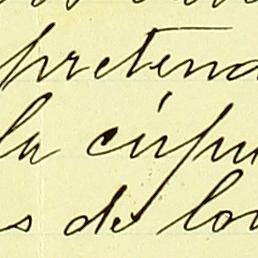 pretend
la cúpu
s de lo